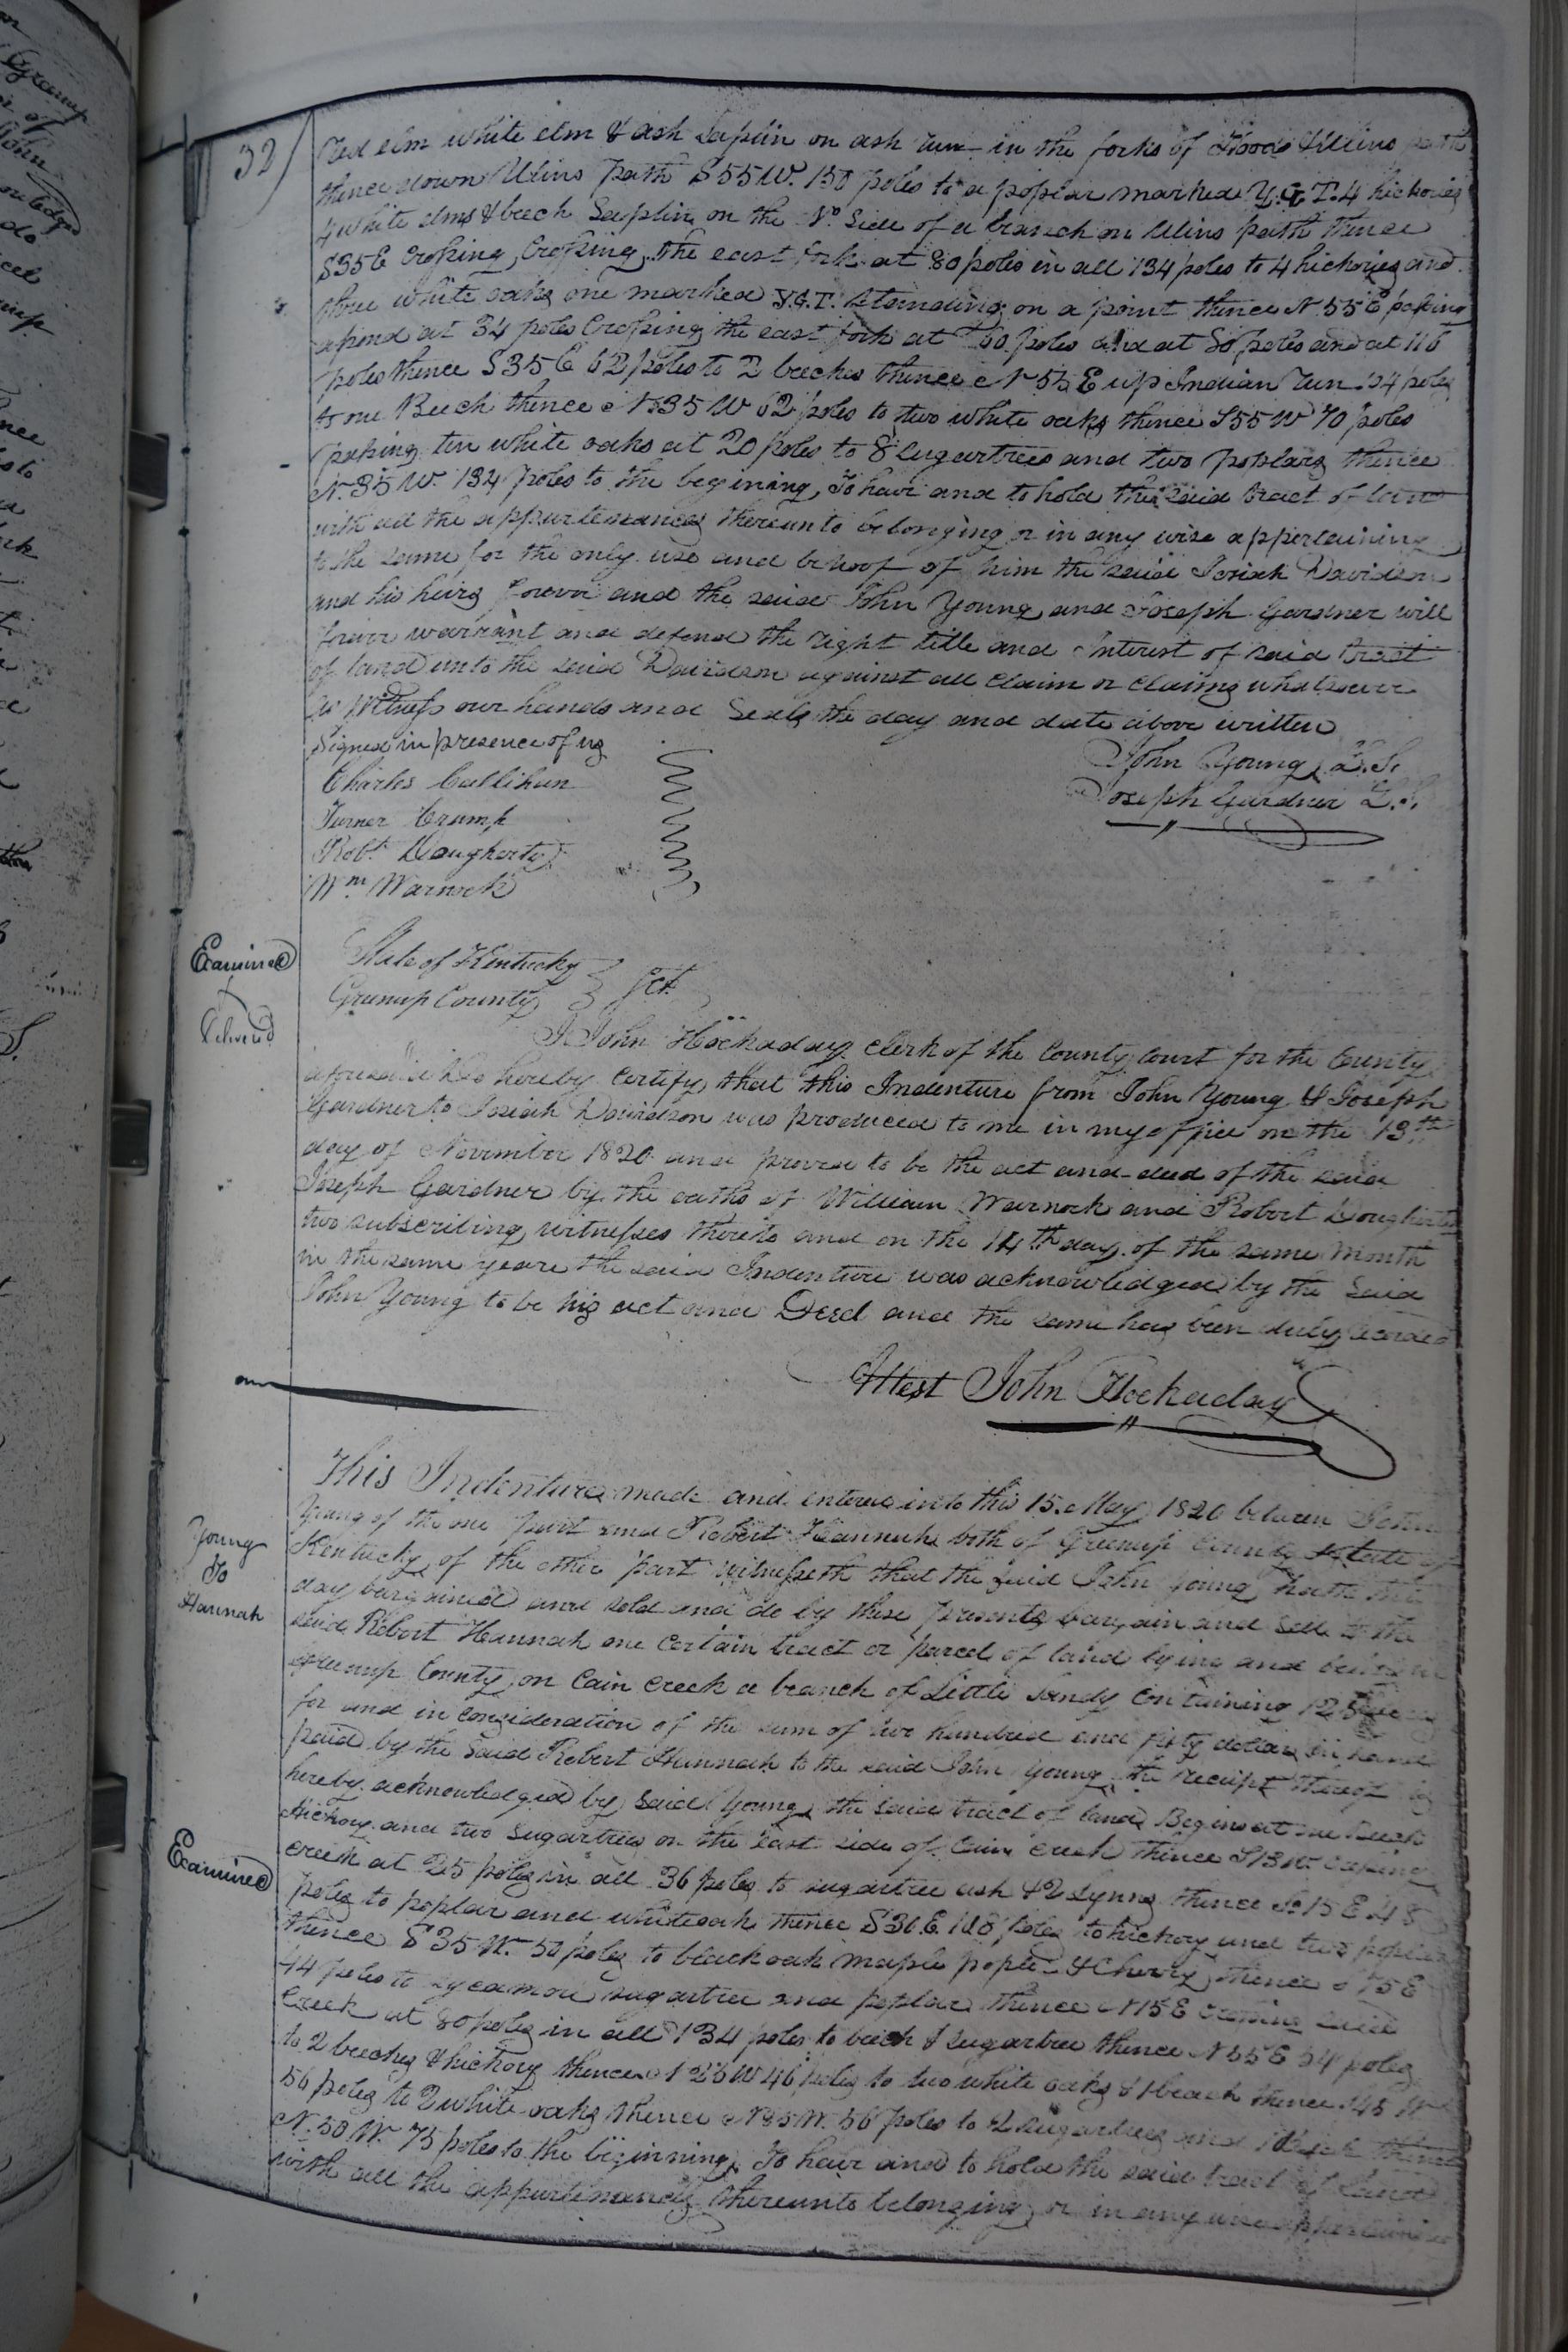 32
Red elm white elm & ash Saplin on ash run in the forks of Hoods & Ulins path
thence down Ulins path S 55 W. 150 poles to a poplar marked Y.G.T. 4 hickories
4 white elms & beech Saplin on the No Side of a branch on Ulins path thence
S 35 E Crossing, Crossing the east fork at 80 poles in all 134 poles to 4 hickories and
three white oaks one marked Y.G.T. Standing on a point thence N 55 E passing
a pond at 34 poles Crossing the east fork at 60 poles and at 80 poles and at 116
poles thence S 35 E 62 poles to 2 beeches thence N 55 E up Indian run 104 poles
to one Beech thence N 35 W 62 poles to two white oaks thence S 55 W 70 poles
passing ten white oaks at 20 poles to 8 Sugartrees and two poplars thence
N. 35 W. 134 poles to the begining, To have and to hold the said tract of land
with all the appurtenances thereunto belonging or in any wise appertaining
to the same for the only use and behoof of him the said Josiah Davidson
and his heirs forever and the said John Young and Joseph Gardner will
forever warrant and defend the right title and Interest of said tract
of land unto the said Davidson against all claim or claims whatsoever
As Witness our hands and Seals the day and date above written
Signed in presence of us
John Young L.S.
Charles Callihan
Joseph Gardner L.S.
Turner Crump
Robt. Dougherty
Wm Warnock
Examined
State of Kentucky
Greenup County } Sct.
Delivered
I John Hockaday clerk of the County Court for the County
aforesaid Do hereby Certify that this Indenture from John Young & Joseph
Gardner to Josiah Davidson was produced to me in my office on the 13th
day of November 1820 and proven to be the act and deed of the said
Joseph Gardner by the oaths of William Warnock and Robert Dougherty
two subscribing witnesses thereto and on the 14th day of the same Month
in the same yeare the said Indenture was acknowledged by the Said
John Young to be his act and Deed and the same has been duly recorded
Attest John Hockaday
This Indenture made and entered into this 15. May 1820 between John
Young
To
Hannah
Young of the one part and Robert Hannah both of Greenup County State of
Kentucky of the other part witnesseth that the said John Young hath this
day bargained and sold and do by these presents bargain and Sell to the
said Robert Hannah one certain tract or parcel of land lying and being in
Greenup County on Cain Creek a branch of Little Sandy Containing 125
for and in consideration of the sum of two hundred and fifty dollars in hand
paid by the said Robert Hannah to the said John Young the receipt thereof is
hereby acknowledged by said Young the said tract of land Begins at one Beech
Hickory and two Sugartrees on the east side of Cain Creek thence
Examined
creek at 25 poles in all 36 poles to sugartree ash & 2 Lynns thence 15 E 48
poles to poplar and whiteoak thence S 36 E. poles to hickory and two poplars
thence S 35 W. 50 poles to black oak maple & Cherry thence 75 E
44 poles to sycamore sugartree and poplar thence N 15 E crossing said
Creek at 80 poles in all 134 poles to beech & sugartree thence N 55 E 54 poles
to 2 beeches & hickory thence 25 W 46 poles to two white oaks & 1 beech thence 45 W
56 poles to 2 white oaks thence 56 poles to 2 sugartrees and 1 thence
N. 50 W. 75 poles to the beginning. To have and to hold the said tract of land
with all the appurtenances thereunto belonging or in any wise appertaining